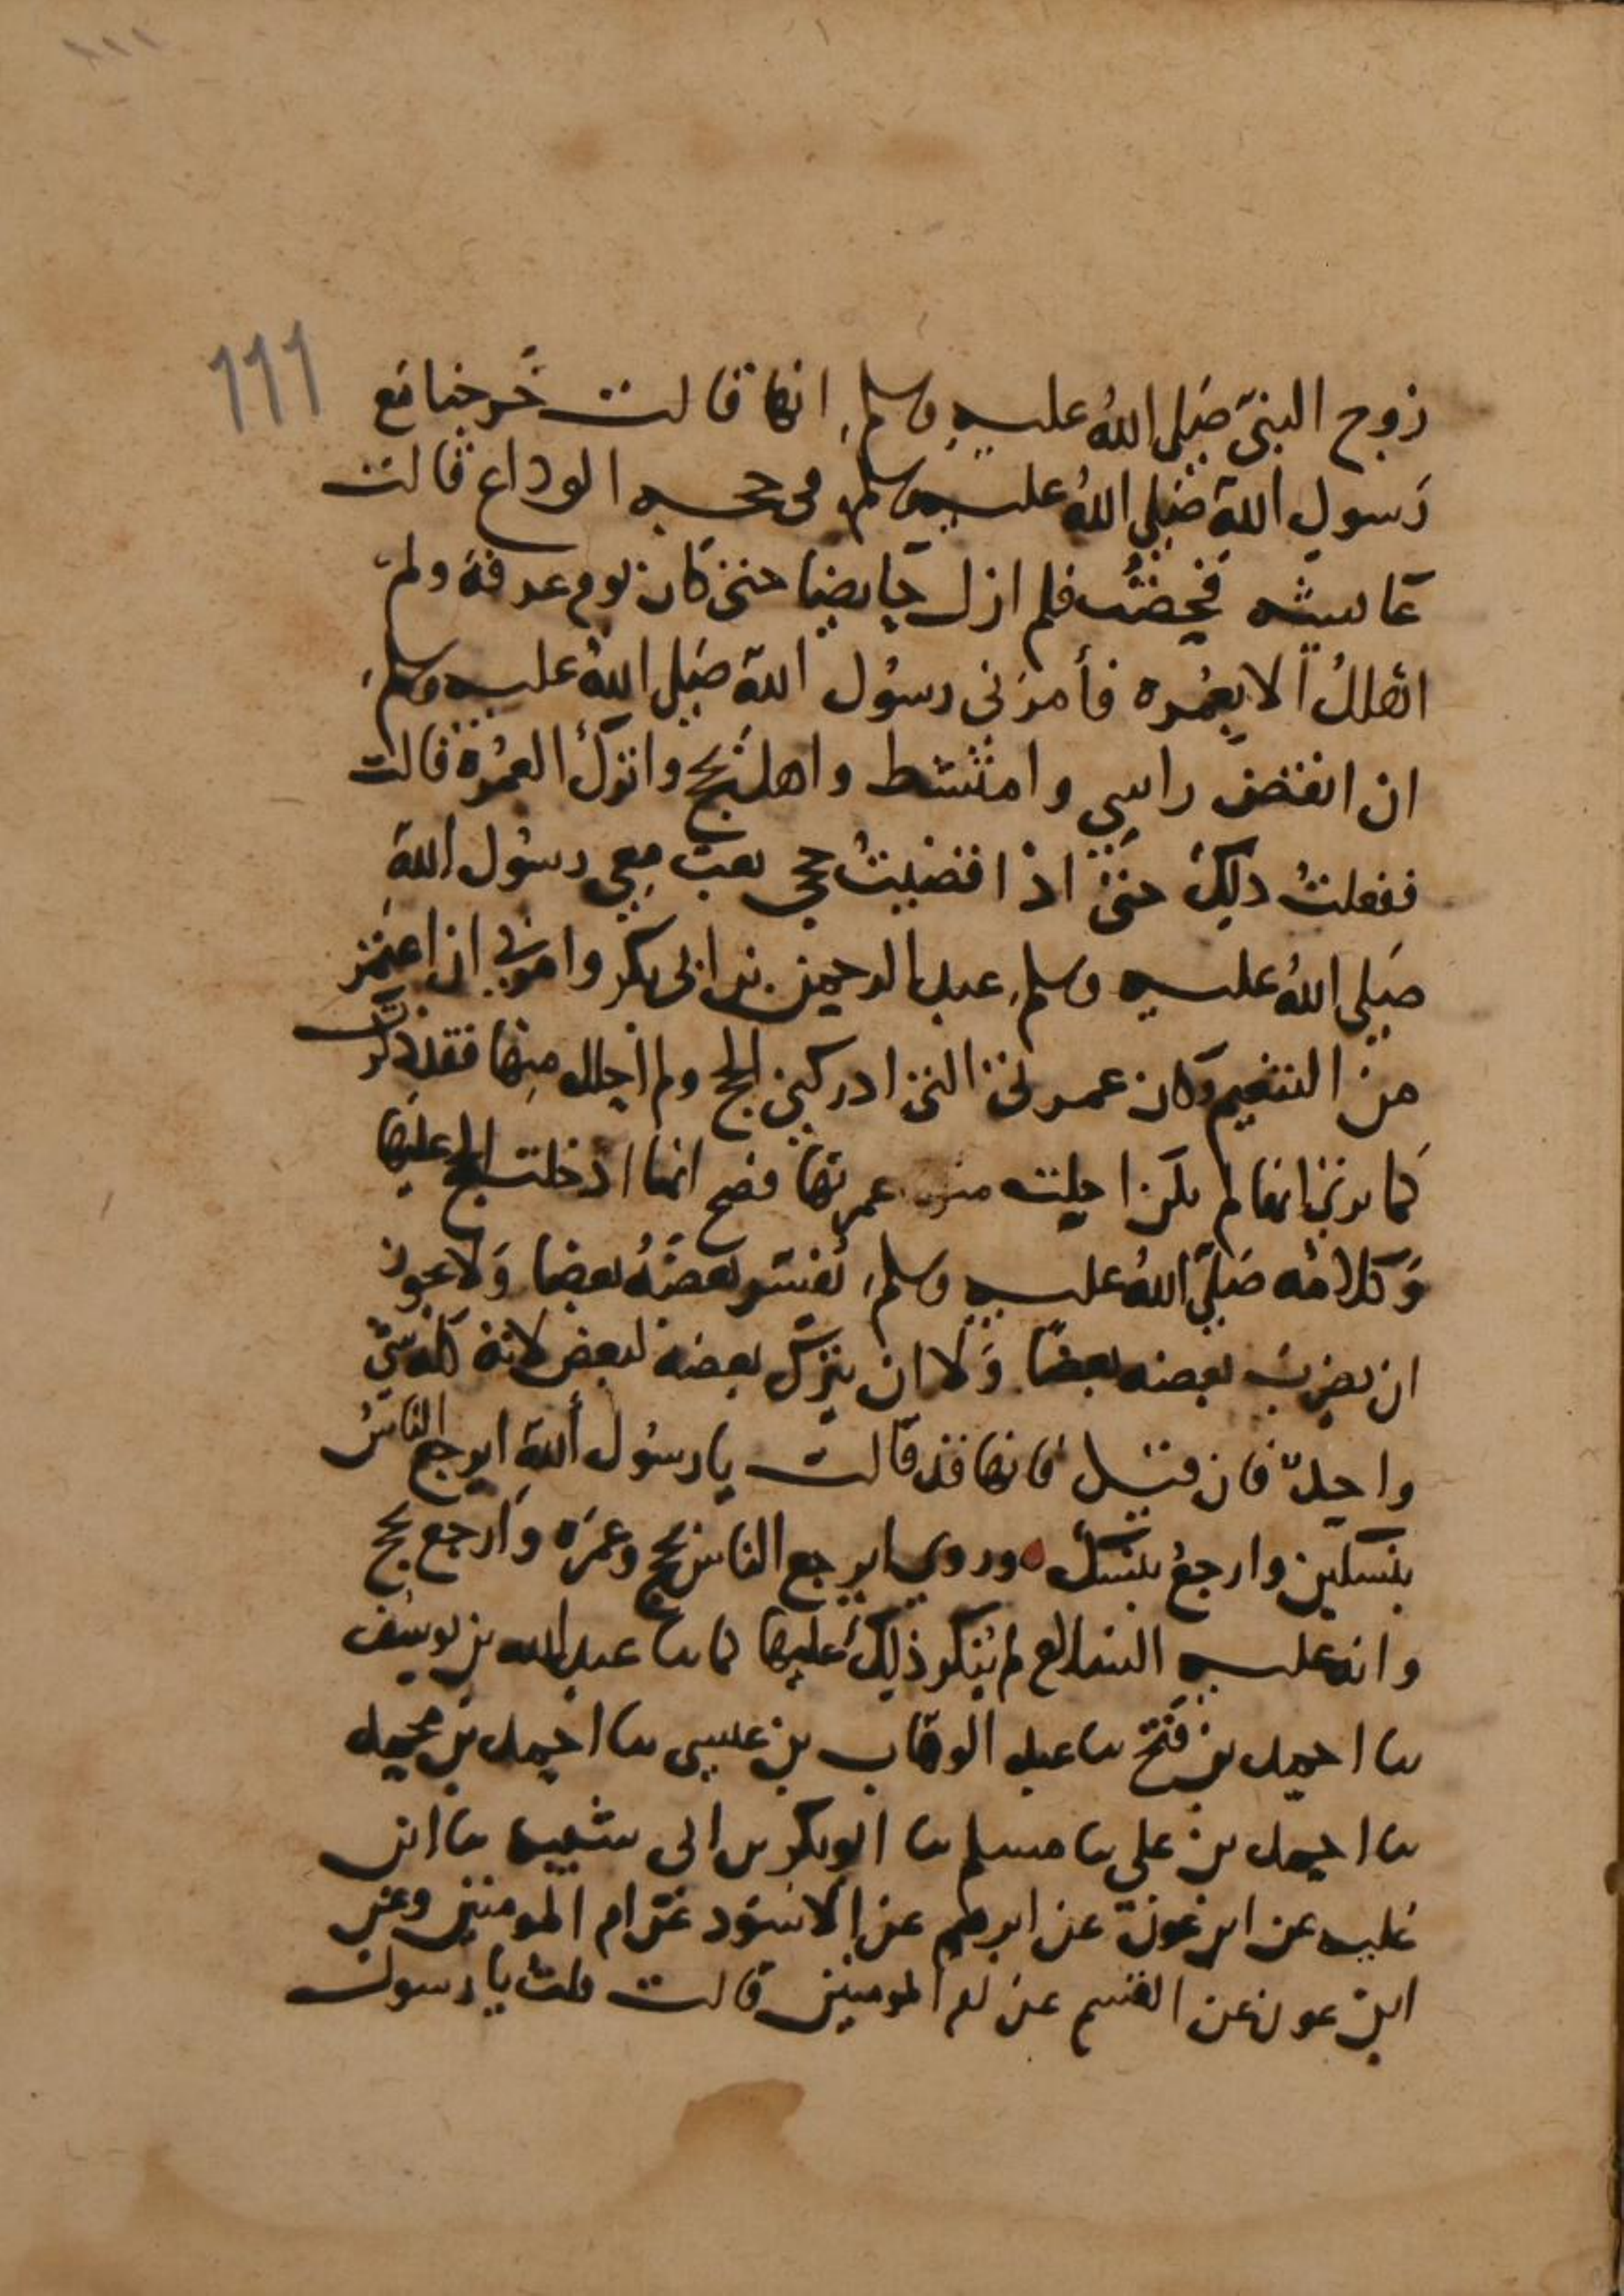 ١١١
111
زوج النبيّ صَلى اللهُ عليهِ وسلم انها قالت خَرجنا مَع
رَسولِ اللهِ صَلى اللهُ عليه وسلم في حجه الوداع قالت
عَايشه فحِضتُ فلم ازل حَايضا حتى كان يوم عرفة ولم
اهللُ الا بعُمره فأمرَني رسُول اللهِ صَلى اللهُ عليه وسلم
ان انقض راسِي وامتشط واهل بحج واترك العُمرة قالت
ففعلتُ ذلك حتى اذا قضيتُ حجي بعث معِي رسُول اللهِ
صَلى اللهُ عليه وسلم عبد الرحمن بن ابي بكر وامرني ان اعتمر
من التنعيم وكان عمرتي التي ادركني الحج ولم احلل منها فقد ذكرت
كما ترى انها لم تكن احلت من عمرتها فصح انما ادخلت الحج عليها
وَكلامُه صَلّى اللهُ عليه وسلم يُفسّر بعضَهُ بعضا وَلا يجوز
ان يضرب بعضه بعضًا وَلا ان يترك بعضه لبعض لانه كله شي
واحدٌ فان قيل فانها قد قالت يا رسُول اللهِ ايرجع الناسُ
بنسكين وارجعُ بنسك وروي ايرجع الناس بحج وعُمرَه وَارجع بحج
وانه عليه السلام لم يُنكر ذلك عليها كما ثنا عبد الله بن يوسُف
ثنا احمد بن فَتح ثنا عبد الوهّاب بن عيسى ثنا احمد بن محمد
ثنا احمد بن علي ثنا مسلم ثنا ابو بكر بن ابي شيبه ثنا ابن
عُليه عن ابن عون عن ابرهيم عن الاسوَد عَن ام المومنين وعن
ابن عون عن القسم عن ام المومنين قالت قلت يا رسول